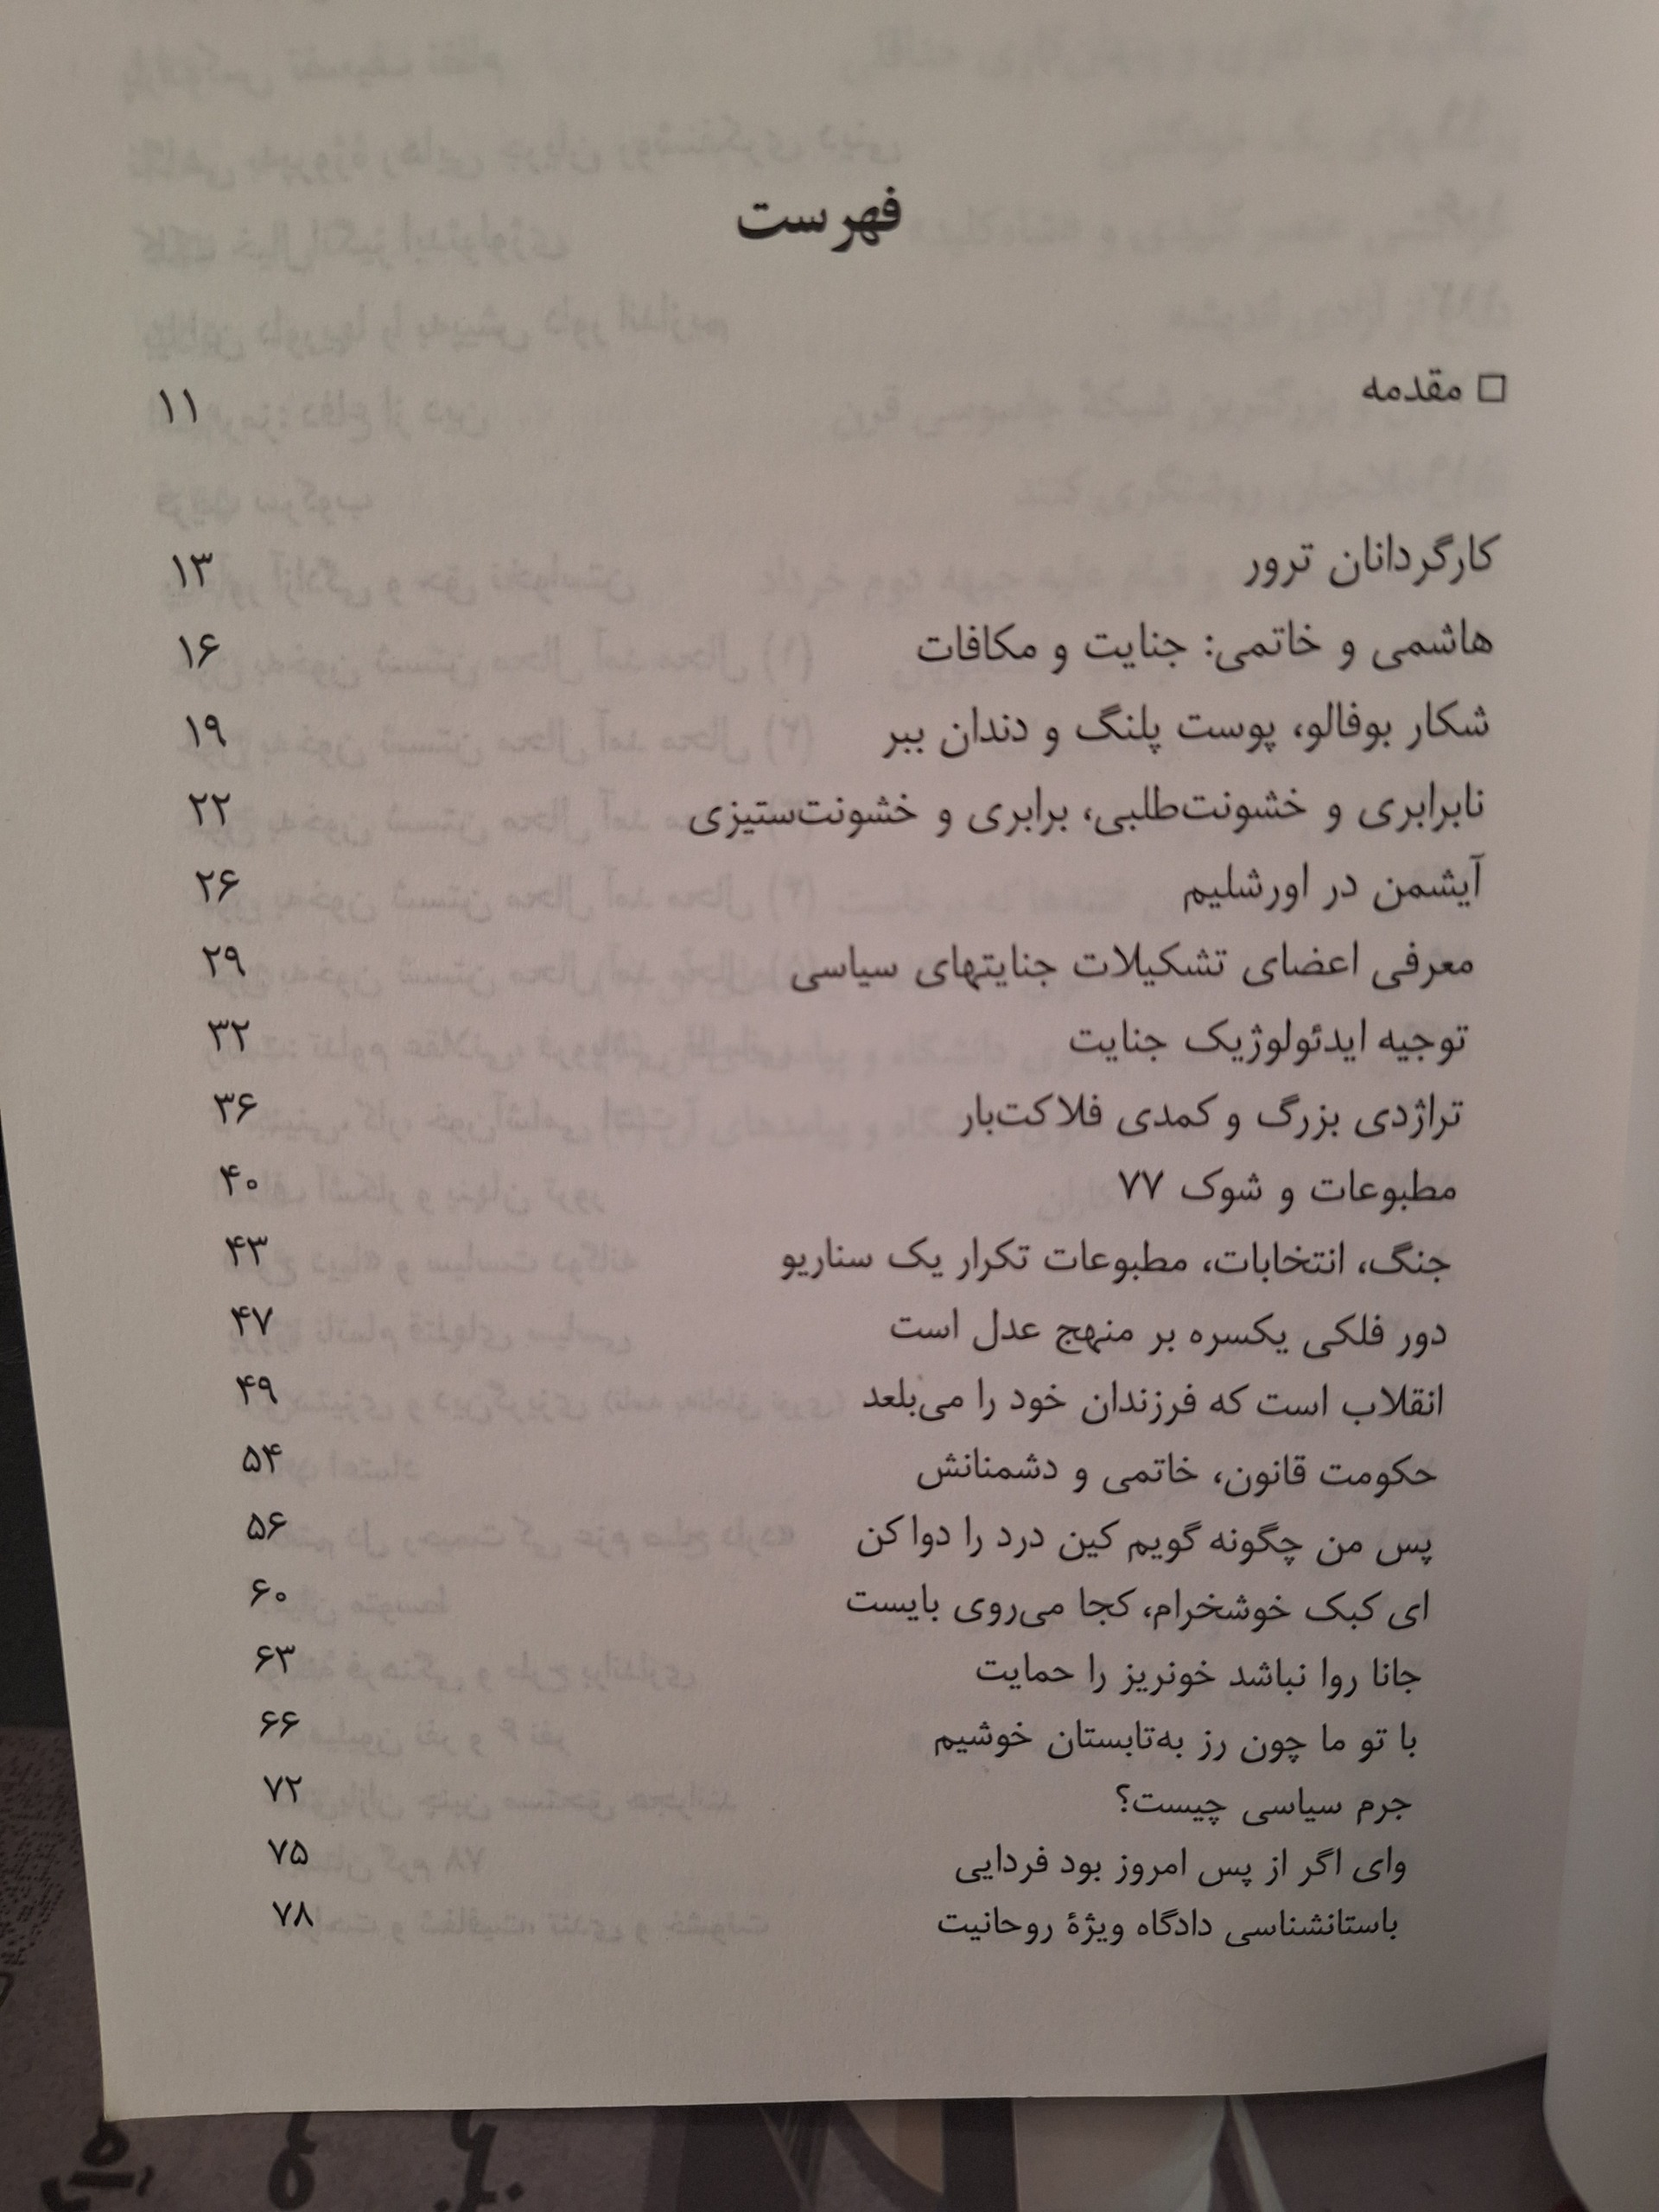 فهرست
□ مقدمه ۱۱
کارگردانان ترور ۱۳
هاشمی و خاتمی: جنایت و مکافات ۱۶
شکار بوفالو، پوست پلنگ و دندان ببر ۱۹
نابرابری و خشونت‌طلبی، برابری و خشونت‌ستیزی ۲۲
آیشمن در اورشلیم ۲۶
معرفی اعضای تشکیلات جنایتهای سیاسی ۲۹
توجیه ایدئولوژیک جنایت ۳۲
تراژدی بزرگ و کمدی فلاکت‌بار ۳۶
مطبوعات و شوک ۷۷ ۴۰
جنگ، انتخابات، مطبوعات تکرار یک سناریو ۴۳
دور فلکی یکسره بر منهج عدل است ۴۷
انقلاب است که فرزندان خود را می‌بلعد ۴۹
حکومت قانون، خاتمی و دشمنانش ۵۴
پس من چگونه گویم کین درد را دوا کن ۵۶
ای کبک خوشخرام، کجا می‌روی بایست ۶۰
جانا روا نباشد خونریز را حمایت ۶۳
با تو ما چون رز به‌تابستان خوشیم ۶۶
جرم سیاسی چیست؟ ۷۲
وای اگر از پس امروز بود فردایی ۷۵
باستانشناسی دادگاه ویژهٔ روحانیت ۷۸